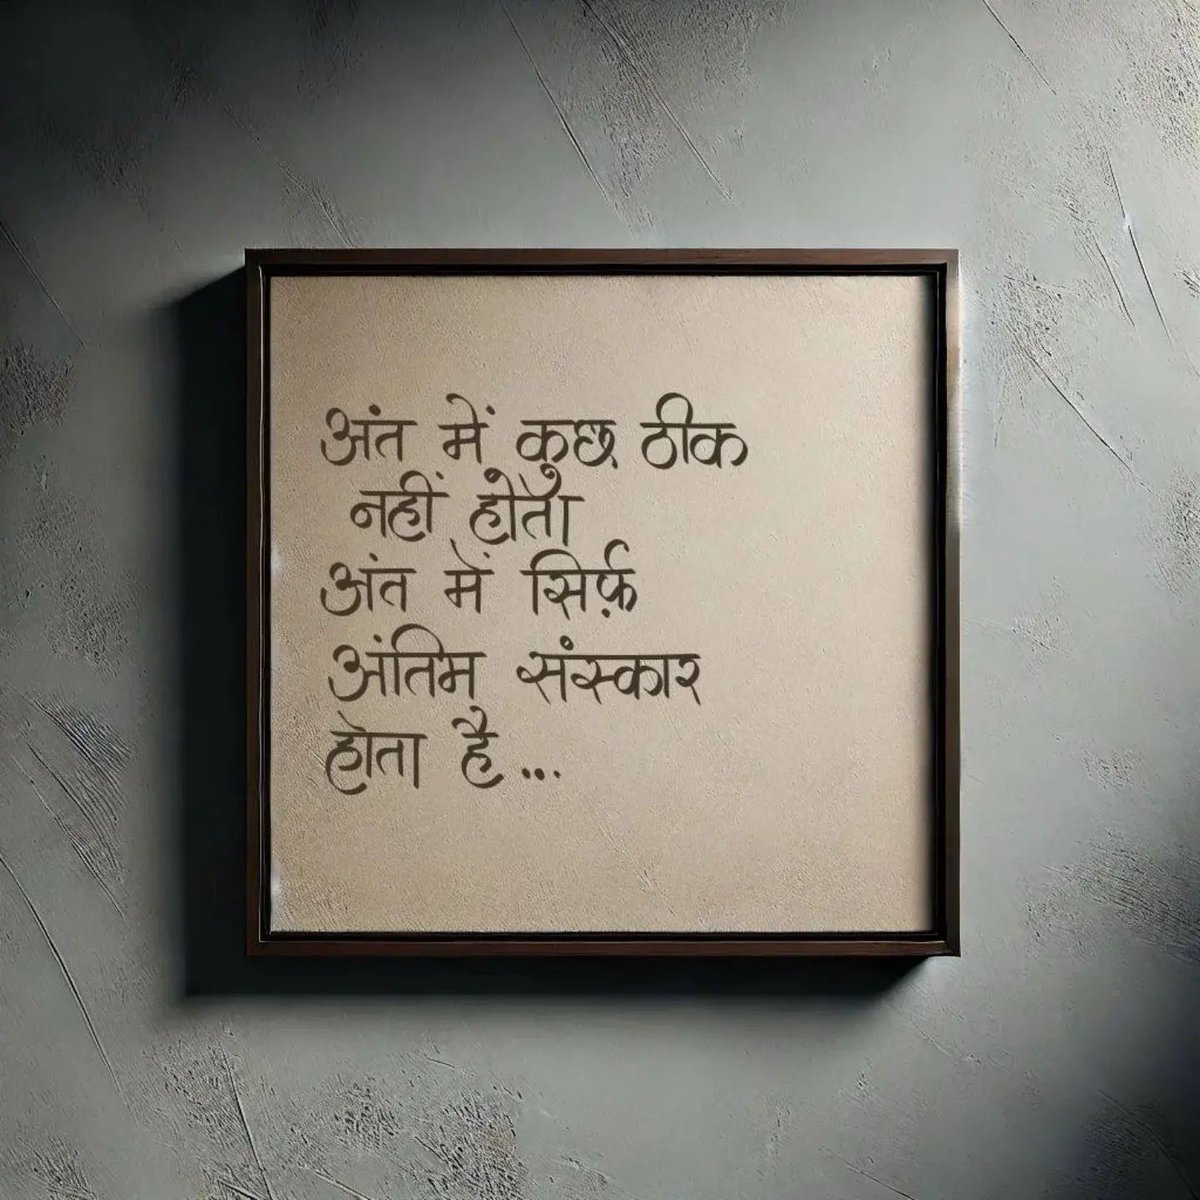 अंत में कुछ ठीक
नहीं होता
अंत में सिर्फ़
अंतिम संस्कार
होता है...